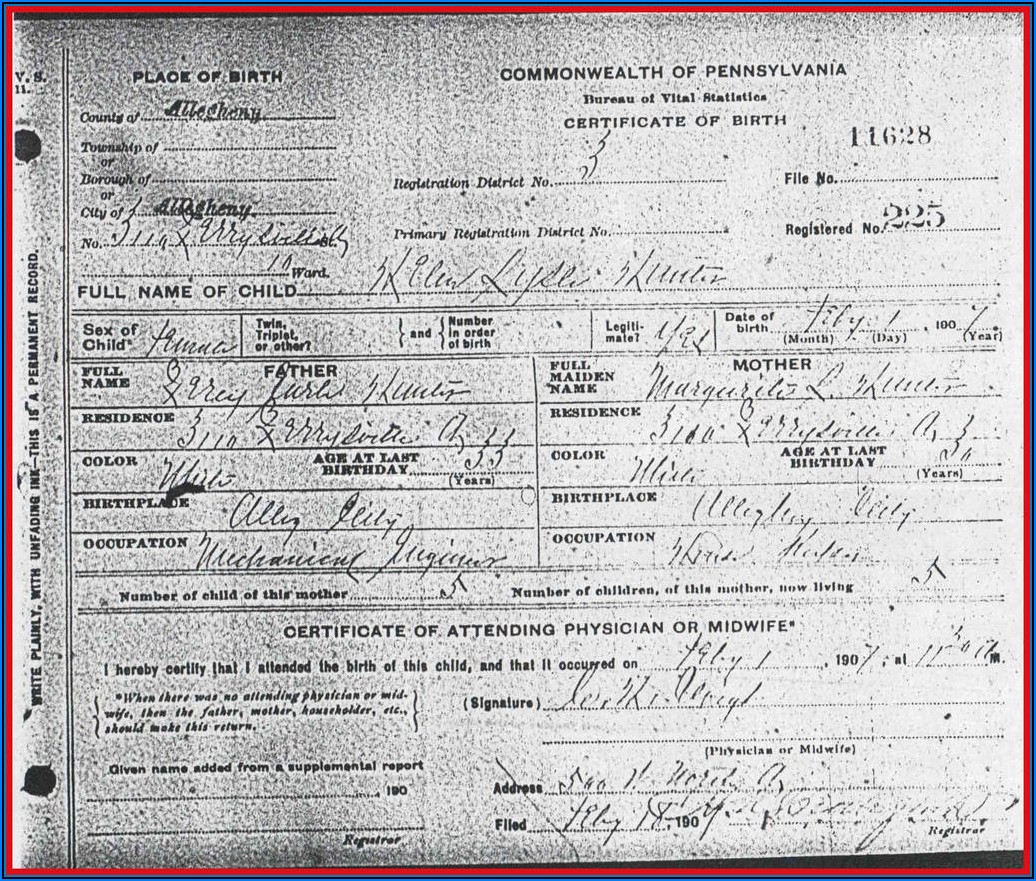 V. S.
11.
PLACE OF BIRTH
County of Allegheny
Township of
or
Borough of
or
City of Allegheny
No. 3110 Perrysville St.
10 Ward.
COMMONWEALTH OF PENNSYLVANIA
Bureau of Vital Statistics
CERTIFICATE OF BIRTH
11628
Registration District No. 3
File No.
Primary Registration District No.
Registered No. 225
FULL NAME OF CHILD Helen Hunter
Sex of Child* Female
Twin, Triplet, or other?
and
Number in order of birth
Legitimate? Yes
Date of birth Feby 1, 1907.
(Month) (Day) (Year)
FATHER
FULL NAME Percy Earle Hunter
RESIDENCE 3110 Perrysville
COLOR White
AGE AT LAST BIRTHDAY 33
(Years)
BIRTHPLACE Alleg City
OCCUPATION Mechanical Engineer
MOTHER
FULL MAIDEN NAME L. Hunter
RESIDENCE Perrysville
COLOR White
AGE AT LAST BIRTHDAY
(Years)
BIRTHPLACE City
OCCUPATION House Keeper
Number of child of this mother 5
Number of children, of this mother, now living 5
CERTIFICATE OF ATTENDING PHYSICIAN OR MIDWIFE*
I hereby certify that I attended the birth of this child, and that it occurred on Feby 1, 1907, at M.
*When there was no attending physician or mid-
wife, then the father, mother, householder, etc.,
should make this return.
(Signature)
(Physician or Midwife)
Given name added from a supplemental report
190
Registrar
Address 500 North
Filed Feby 18, 1907
Registrar
WRITE PLAINLY, WITH UNFADING INK—THIS IS A PERMANENT RECORD.